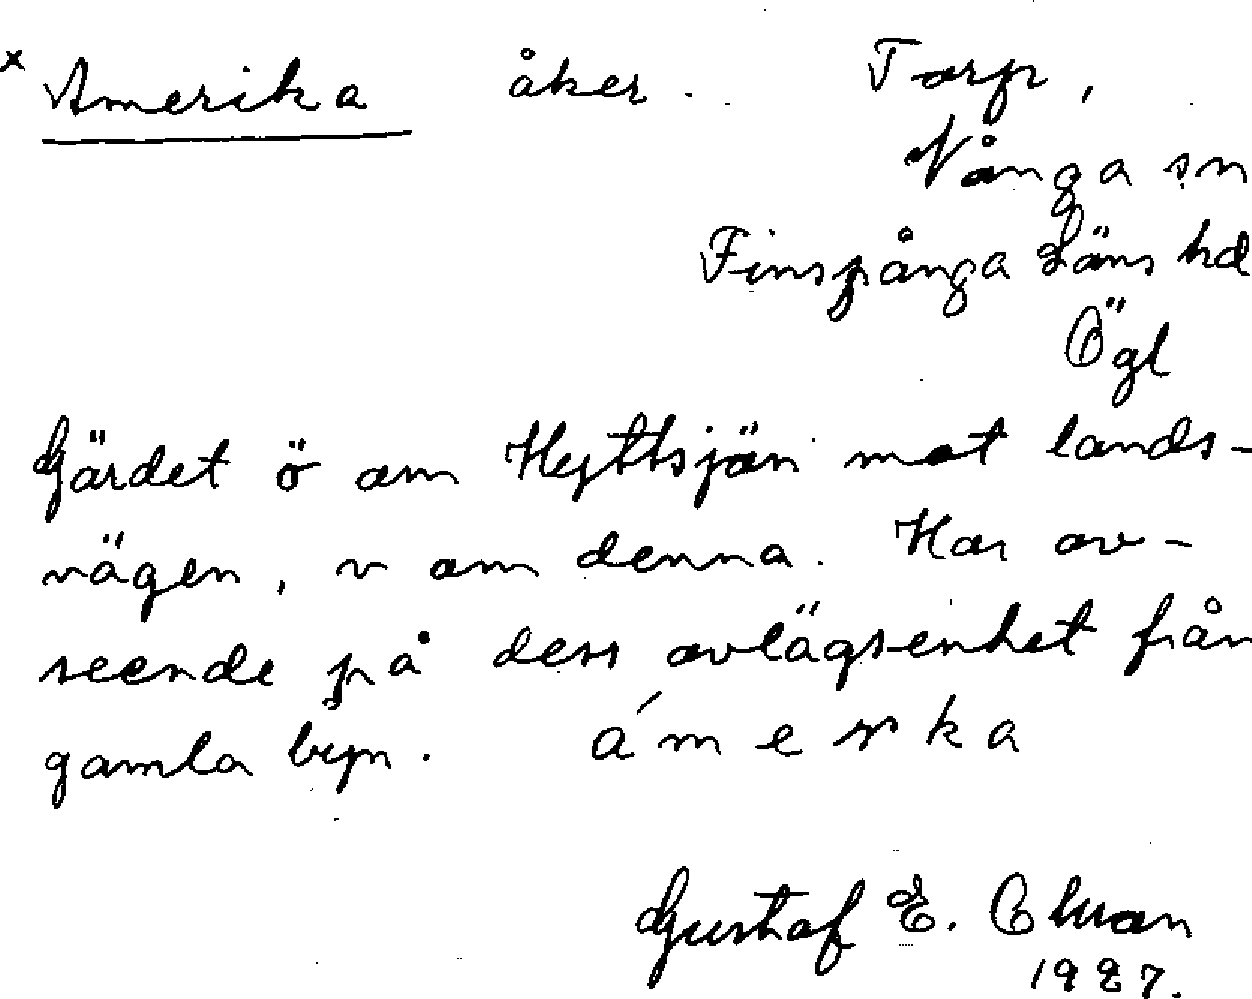 x Amerika åker. Torp,
Vånga sn
Finspånga läns hd
Ögl
Gärdet ö om Hyttsjön mot lands-
vägen, v om denna. Har av-
seende på dess avlägsenhet från
gamla byn. ámerka
Gustaf E.
1927.